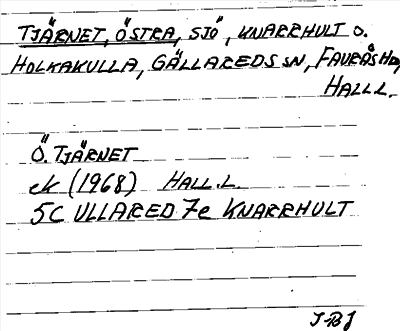 TJÄRNET, ÖSTRA, SJÖ, KNARRHULT O.
HOLKAKULLA, GÄLLAREDS SN, FAURÅS HD,
HALL L.
Ö. TJÄRNET
ek (1968) HALL.L.
5C ULLARED 7e KNARRHULT
I-BJ